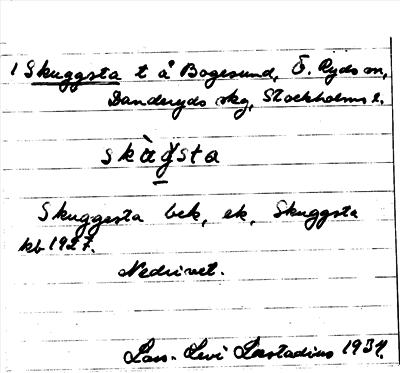 1 Skuggsta t å Bogesund, Ö. Ryds sn,
Danderyds skg, Stockholms l.
skàg̀sta
Skuggesta bek, ek, Skuggsta
kb 1927.
Nedrivet.
Lars-Levi Læstadius 1934.